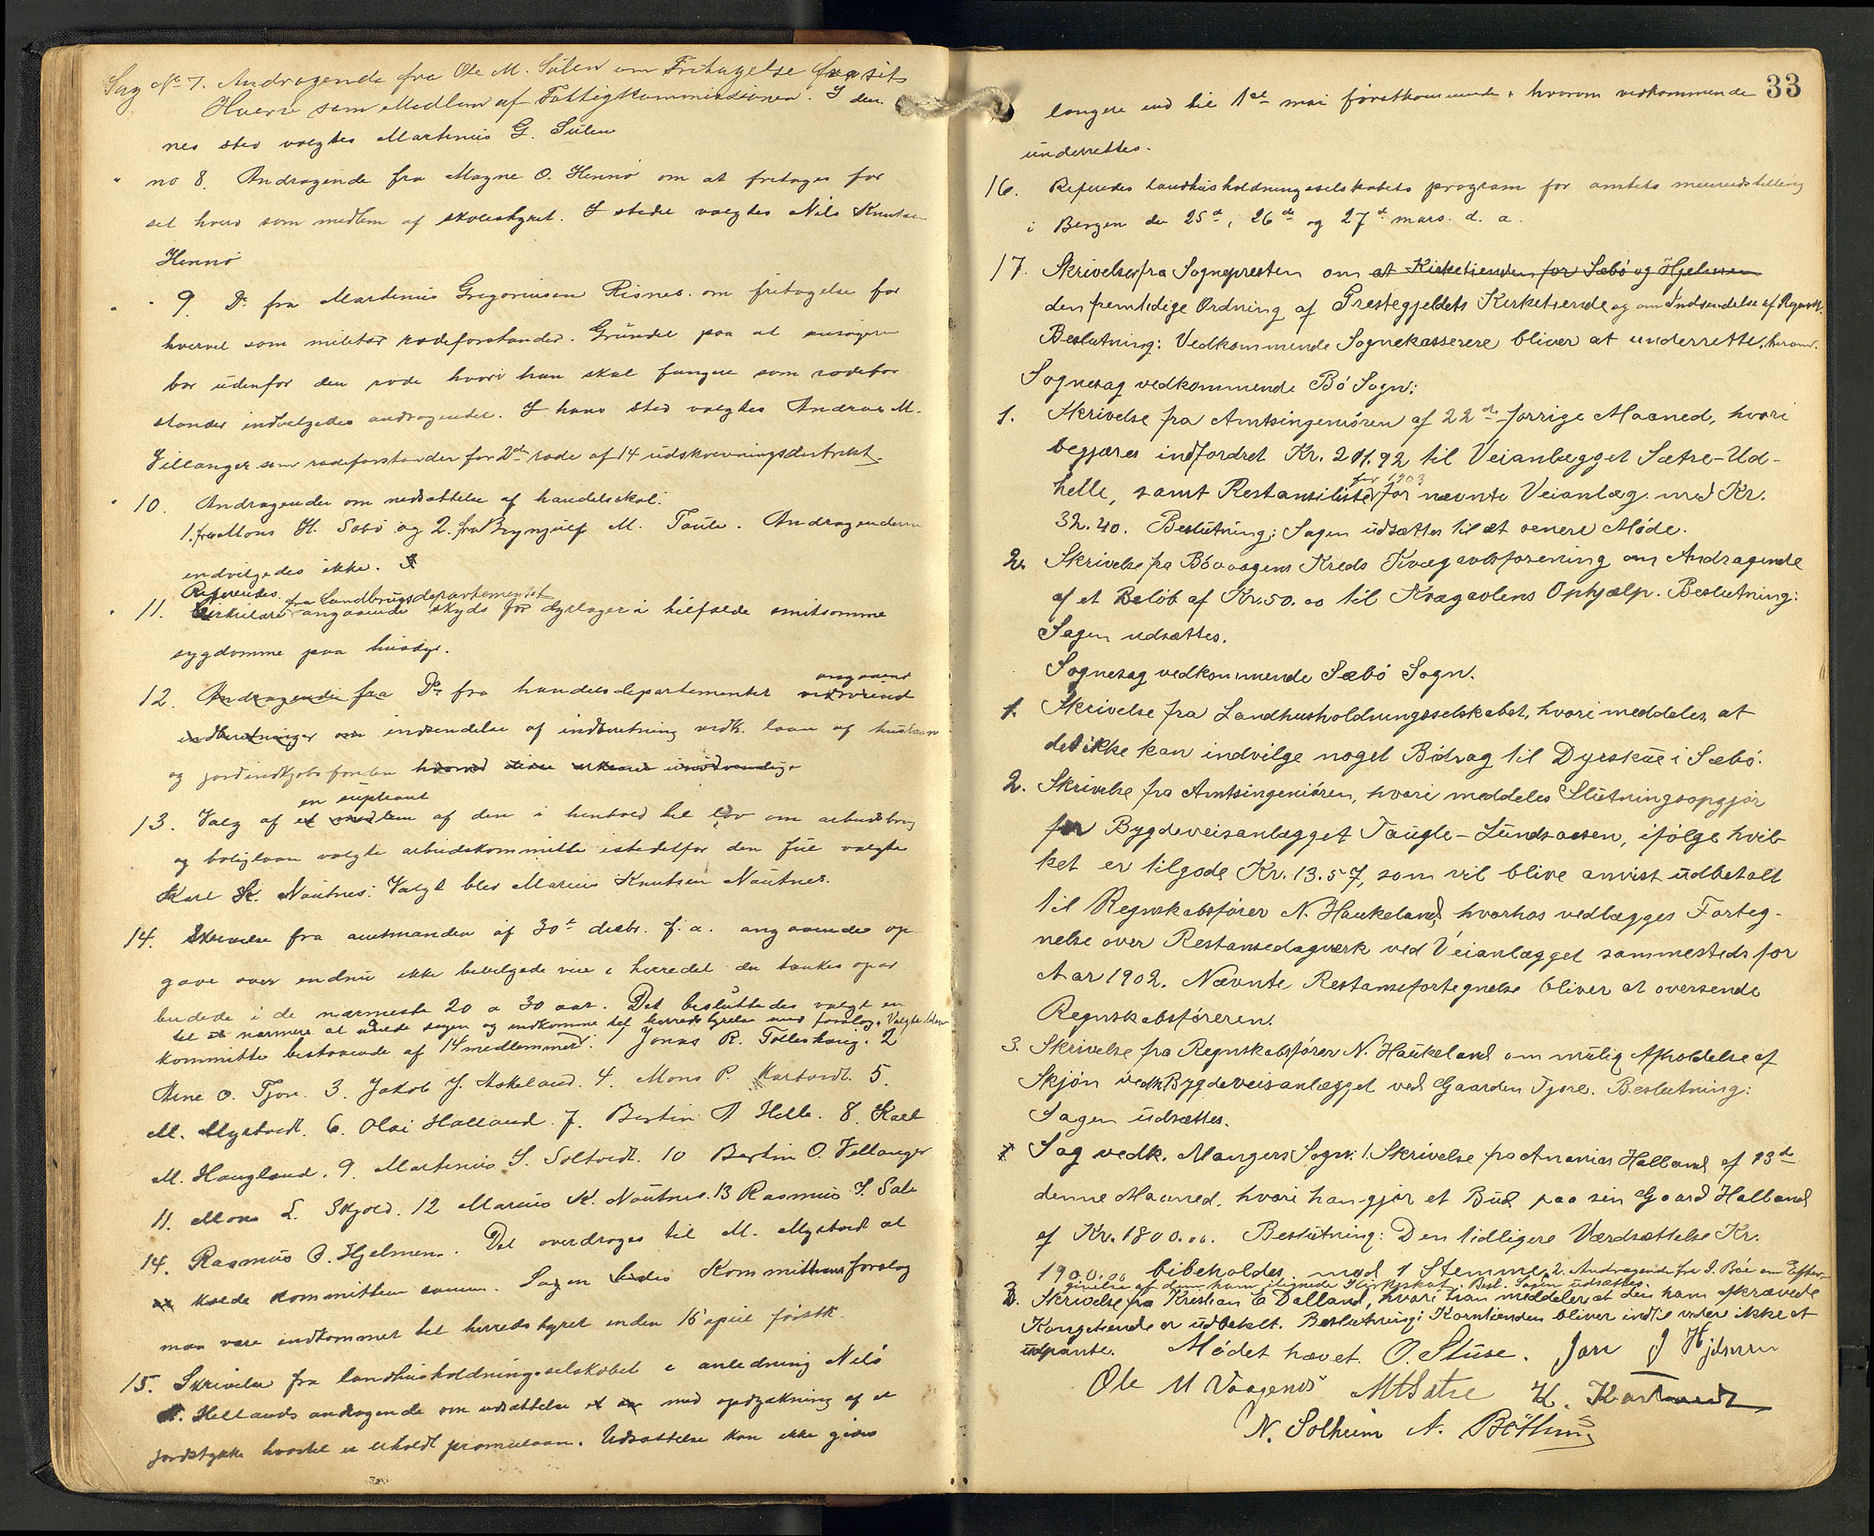 Sag No 7. Andragende fra Ole M. Sülen om Fritagelse fra sit
Hverv som Medlem af Fattigkommissionen. I den-
nes sted valgtes Martinus G. Sülen
" no 8. Andragende fra Magne O. Hennø om at fritages for
set hverv som medlem af skolestyret. I stedet valgtes Nils Knutsen
Hennø
" " 9. Do fra Martinus Gregoriusen Risnes om fritagelse for
hvervet som militær rodeforstander. Grundet paa at ansøgeren
bor udenfor den rode hvori han skal fungere som rodefor
stander indvelgedes andragendet. I hans sted valgtes Andreas M.
Villanger som rodeforstander for 2den rode af 14 udskrivningsdistrikt.
" 10. Andragender om nedsættelse af handelsskat.
1. fra Mons H. Sæbø og 2. fra Brynjulf M. Taule. Andragenderne
indvilgedes ikke.
Refereredes fra Landbrugsdepartementet
" 11. Cirkulære angaaende skyds for dyrlæger i tilfælde smitsomme
sygdomme paa husdyr.
angaaend
12. Andragende fra Do fra handelsdepartementet vedrørend
indberetninger om indsendelse af indberetning vedk. laan af huslaan
og jordindkjøbsfonden
en supleant
13. Valg af et medlem af den i henhold til lov om arbeidsbrug
og boliglaan valgte arbeidskommitte istedetfor den før valgte
Karl K. Nautnes. Valgt blev Marius Knutsen Nautnes.
14. Skrivelse fra amtmanden af 30te decbr. f. a. angaaende op
gave over endnu ikke bevilgede veie i herredet der tænkes opar
beidede i de nærmeste 20 a 30 aar. Det besluttedes valgt en
til at nærmere at utrede sagen og indkomme til herredstyrelse med forslag. Valgte blev
kommitte bestaaende af 14 medlemmer. 1 Jonas R. Tolleshaug. 2
Arne O. Fjore. 3. Jakob J. Askeland. 4. Mons P. Kartveit. 5.
M. Myktvedt. 6. Olai Halland. 7. Bertin A Helle. 8. Karl
M. Haugland. 9. Martinus S. Soltvedt. 10 Bertin O. Villanger
11. Mons L. Skjold. 12 Marius K. Nautnes. 13 Rasmus I. Sale
14. Rasmus O. Hjelmen. Det overdroges til M. Myktvedt at
kalde kommitteen sammen. Sagen Kommitteens forslag
maa være indkommet til herredstyret inden 15 april førstk.
15. Skrivelse fra landhusholdningsselskabet i anledning Nils
N. Hellands andragende om udsættelse med opdyrkning af et
jordstykke hvortil er erholdt præmielaan. Udsættelse kan ikke gives
33
længere end til 1ste mai førstkommende, hvorom vedkommende
underrettes.
16. Referedes landhusholdningsselskabets program for amtets meieriudstilling
i Bergen den 25de, 26de og 27de mars. d. a.
17. Skrivelse fra Sognepresten om at Kirketienden for Sæbø og Hjelmen
den fremtidige Ordning af Prestegjeldets Kirketiende og om Indsendelse af Regnsk.
Beslutning: Vedkommende Sognekasserere bliver at underrette herom.
Sognesag vedkommende Bø Sogn:
1. Skrivelse fra Amtsingeniøren af 22de forrige Maaned, hvori
begjæres indfordret Kr. 201.92 til Veianlægget Sætre-Ud-
for 1903
helle, samt Restanseliste for nævnte Veianlæg med Kr.
32.40. Beslutning: Sagen udsættes til et senere Møde.
2. Skrivelse fra Bövaagens Kreds Kvægavlsforening om Andragende
af et Beløb af Kr. 50.00 til Kvægavlens Ophjælp. Beslutning:
Sagen udsættes.
Sognesag vedkommende Sæbø Sogn.
1. Skrivelse fra Landhusholdningsselskabet, hvori meddeles, at
det ikke kan indvilge noget Bidrag til Dyrskue i Sæbø.
2. Skrivelse fra Amtsingeniøren, hvori meddeles Slutningsopgjør
for Bygdeveisanlægget Taugle-Lundsaasen, ifølge hvil-
ket er tilgode Kr. 13.57, som vil blive anvist udbetalt
til Regnskabsfører N. Haukeland, hvorhos vedlægges Forteg-
nelse over Restansedagværk ved Veianlægget sammesteds for
Aar 1902. Nævnte Restansefortegnelse bliver at oversende
Regnskabsføreren.
3. Skrivelse fra Regnskabsfører N. Haukeland om mulig Afholdelse af
Skjøn vedk. Bygdeveisanlægget ved Gaarden Fjore. Beslutning:
Sagen udsættes.
Sag vedk. Mangers Sogn: 1. Skrivelse fra Ananias Halland af 13de
denne Maaned, hvori han gjør et Bud paa sin Gaard Halland
af Kr. 1800.00. Beslutning: Den tidligere Værdsættelse Kr.
1900.00 bibeholdes mod 1 Stemme. 2. Andragende fra I. Bøe om Efter-
givelse af den ham ilignede Skat. Besl. Sagen udsættes.
3. Skrivelse fra Kristian E Dalland, hvori han meddeler, at den ham afkrævede
Kongetiende er udbetalt. Beslutning: Korntienden bliver indtil videre ikke at
udpante. Mødet hævet. O. Stuse. Jon J Hjelmen
Ole M Vaagenes M H Sætre K. Kartveit
N. Solheim A. Bøthun